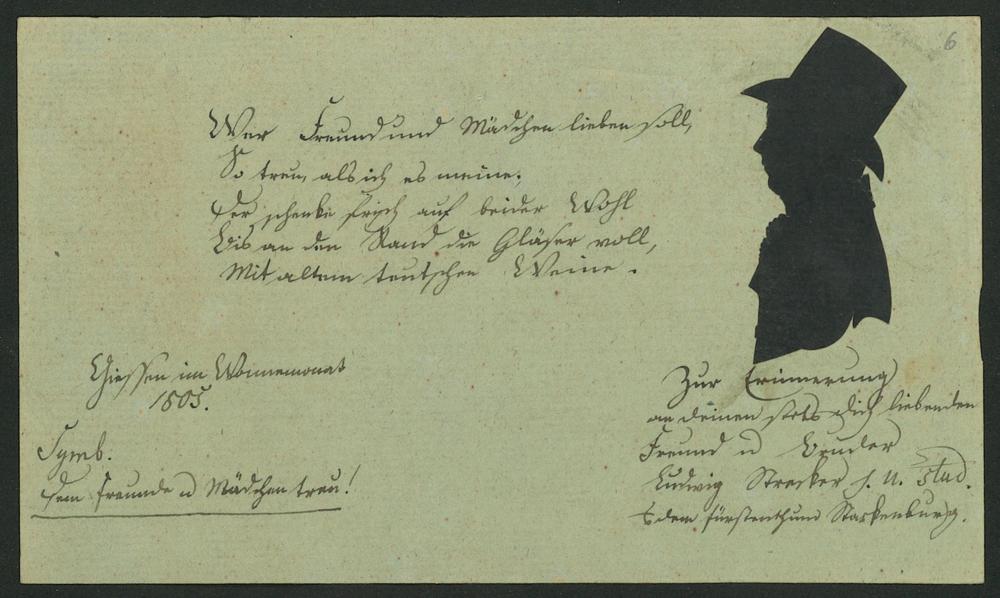 6
Wer Freund und Mädchen lieben soll,
So treu, als ich es meine;
Der schenke frisch auf beider Wohl
Bis an den Rand die Gläser voll,
Mit altem teutschen Weine.
Giessen im Wonnemonat
1805.
Symb.
Dem Freunde u Mädchen treu!
Zur Erinnerung
an deinen stets dich liebenden
Freund u Bruder
Ludwig Strecker d. R. stud.
dem Fürstenthum Starkenburg.